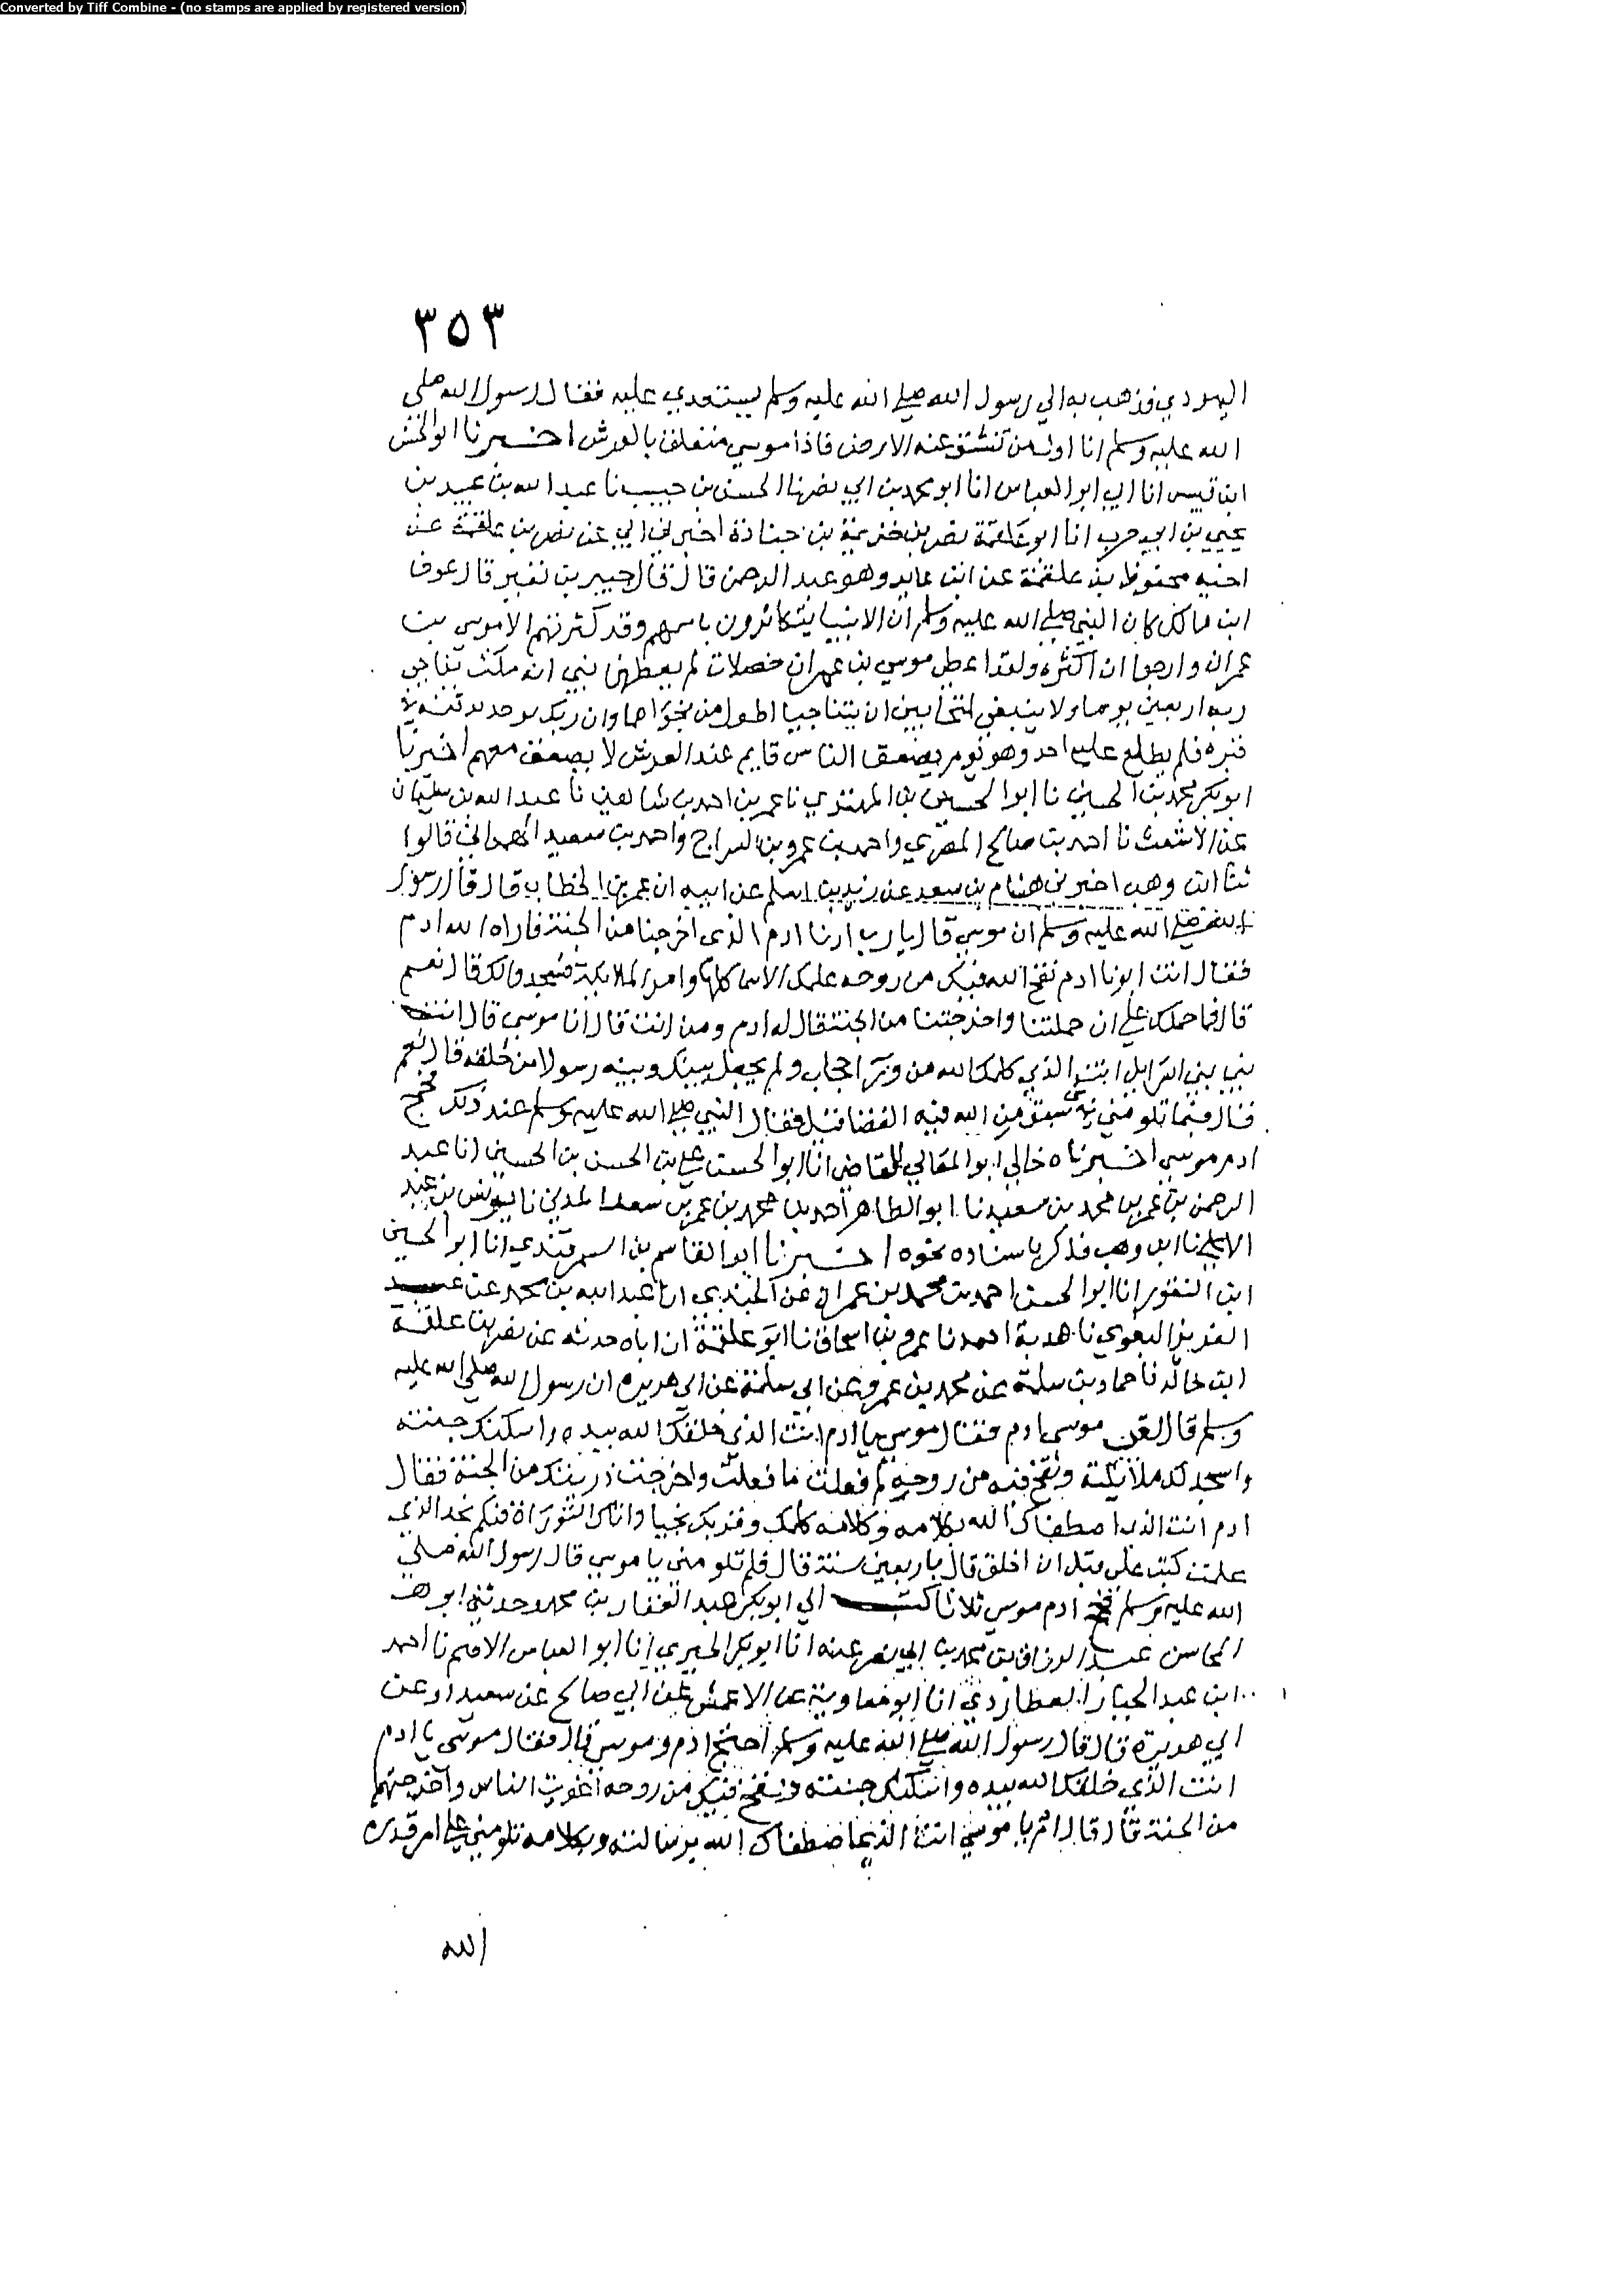 Converted by Tiff Combine - (no stamps are applied by registered version)
٣٥٣
اليهودي فذهب به الي رسول الله صلى الله عليه وسلم يستعدي عليه فقال رسول الله صلى
الله عليه وسلم انا اول من تنشق عنه الارض فاذا موسي متعلق بالعرش اخبرنا ابو الحسن
ابن قبيس انا ابي ابو العباس انا ابو محمد بن ابي نصر نا الحسن بن حبيب نا عبد الله بن عبيد بن
يحيي بن ابي حرب انا ابو علقمة نصر بن خزيمة بن جنادة اخبرني ابي عن نصر بن علقمة عن
اخيه محفوظ بن علقمة عن ابن عايد وهو عبد الرحمن قال قال جبير بن نفير قال عوف
ابن مالك كان النبي صلى الله عليه وسلم ان الانبيا يتكاثرون بامهم وقد كثرتهم الا موسي بن
عمران وارجوا ان اكثره ولقد اعطي موسي بن عمران خصلات لم يعطهن نبي انه مكث يناجي
ربه اربعين يوما ولا ينبغي لمتحابين ان يتناجيا اطول من نجواهما وان ربك توحد بدفنه في
قبره فلم يطلع عليه احد وهو يوم يصعق الناس قايم عند العرش لا يصعق معهم اخبرنا
ابو بكر محمد بن الحسين نا ابو الحسين بن المهتدي نا عمر بن احمد بن شاهين نا عبد الله بن سليمان
عن الاشعث نا احمد بن صالح المصري واحمد بن عمرو بن السراح واحمد بن سعيد الهمداني قالوا
ثنا ابن وهب اخبرني هشام بن سعد عن زيد بن اسلم عن ابيه ان عمر بن الخطاب قال قال رسول
الله صلى الله عليه وسلم ان موسي قال يا رب ارنا ادم الذي اخرجنا من الجنة فاراه الله ادم
فقال انت ابونا ادم نفخ الله فيك من روحه علمك الاسما كلها وامر الملايكة فسجدوا لك قال نعم
قال فما حملك علي ان حملتنا واخرجتنا من الجنة قال له ادم ومن انت قال انا موسي قال انت
نبي بني اسرايل انت الذي كلمك الله من ورا حجاب ولم يجعل بينك وبينه رسولا من خلقه قال نعم
قال فيما تلومني في شي سبق من الله فيه القضا قبل فقال النبي صلى الله عليه وسلم عند ذلك فحج
ادم موسي اخبرناه خالي ابو المعالي القاضي انا ابو الحسن علي بن الحسن بن الحسين انا عبد
الرحمن بن عمر بن محمد بن سعيد نا ابو الطاهر احمد بن محمد بن عمرو بن سعد المديني نا يونس بن عبد
الاعلي نا ابن وهب فذكر باسناده نحوه اخبرنا ابو القاسم بن السمرقندي انا ابو الحسين
ابن النقور انا ابو الحسن احمد بن محمد بن عمران عن الجندي انا عبد الله بن محمد عن عبد
العزيز البغوي نا هدبة احمد نا عمرو بن اسحاق نا ابو علقمة ان اباه حدثه عن نصر بن علقمة
ابن خالد نا حماد بن سلمة عن محمد بن عمرو عن ابي سلمة عن ابي هريرة ان رسول الله صلى الله عليه
وسلم قال لقي موسي ادم فقال موسي يا ادم انت الذي خلقك الله بيده واسكنك جنته
واسجد لك ملائكته ونفخ فيه من روحه لم فعلت ما فعلت واخرجت ذريتك من الجنة فقال
ادم انت الذي اصطفاك الله بكلامه وكلامه كلمك وقربك نجيا واتاك التوراة فبكم تجد الذي
عملت كتب علي قبل ان اخلق قال باربعين سنة قال فلم تلومني يا موسي قال رسول الله صلى
الله عليه وسلم فحج ادم موسي ثلاثا كتب الي ابو بكر عبد الغفار بن محمد وحدثني ابو
المحاسن عبد الرزاق بن محمد بن ابي نصر عنه انا ابو بكر الحيري انا ابو العباس الاصم نا احمد
ابن عبد الجبار العطاردي انا ابو معاوية عن الاعمش عن ابي صالح عن سعيد او عن
ابي هريرة قال قال رسول الله صلى الله عليه وسلم احتج ادم وموسي قال فقال موسي يا ادم
انت الذي خلقك الله بيده واسكنك جنته ونفخ فيك من روحه اغويت الناس واخرجتهم
من الجنة قال قال ادم يا موسي انت الذي اصطفاك الله برسالته وبكلامه تلومني علي امر قدره
الله